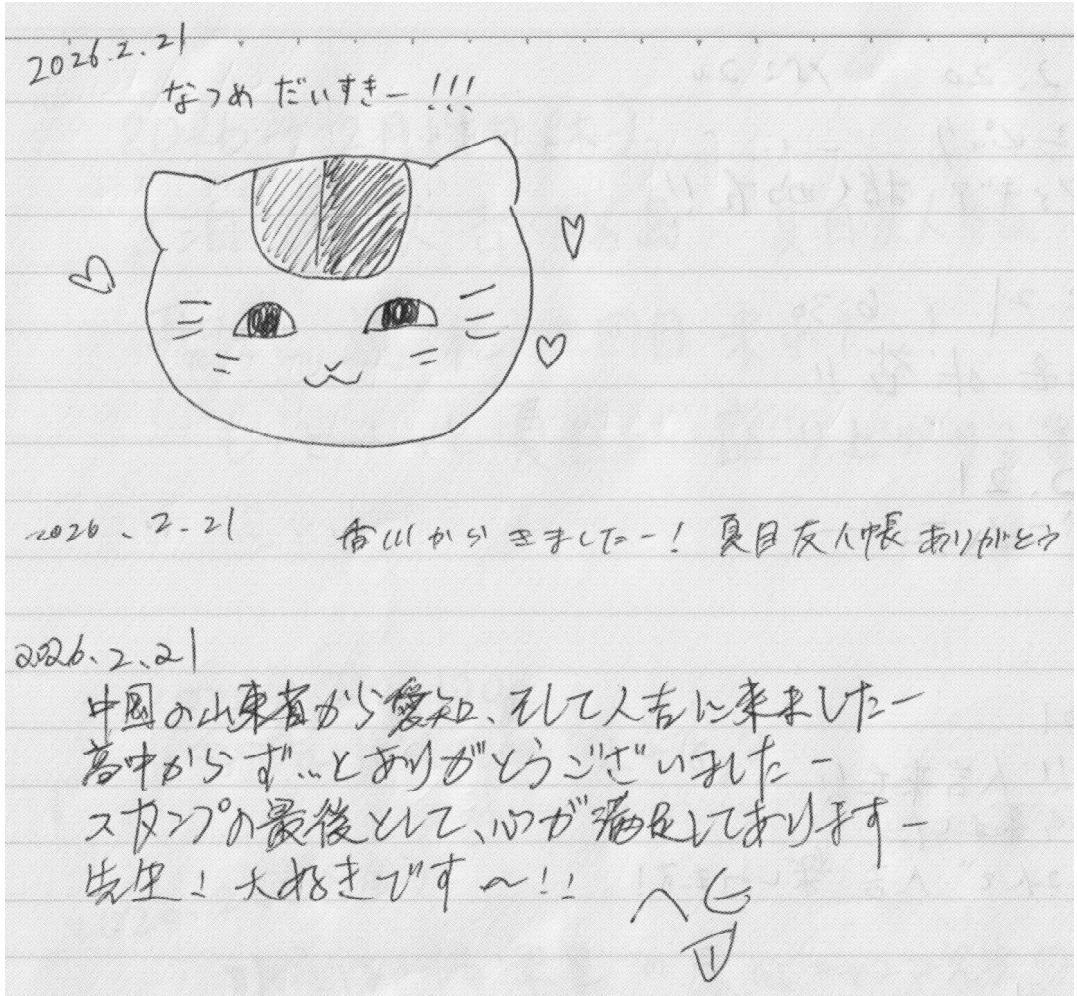 2026.2.21
なつめ だいすきー!!!
2026.2.21 香川から きましたー! 夏目友人帳 ありがとう
2026.2.21
中国の山東省から愛知、そして人吉に来ましたー
高中からず…とありがとうございましたー
スタンプの最後として、心が満足してありますー
先生！大好きです～!!